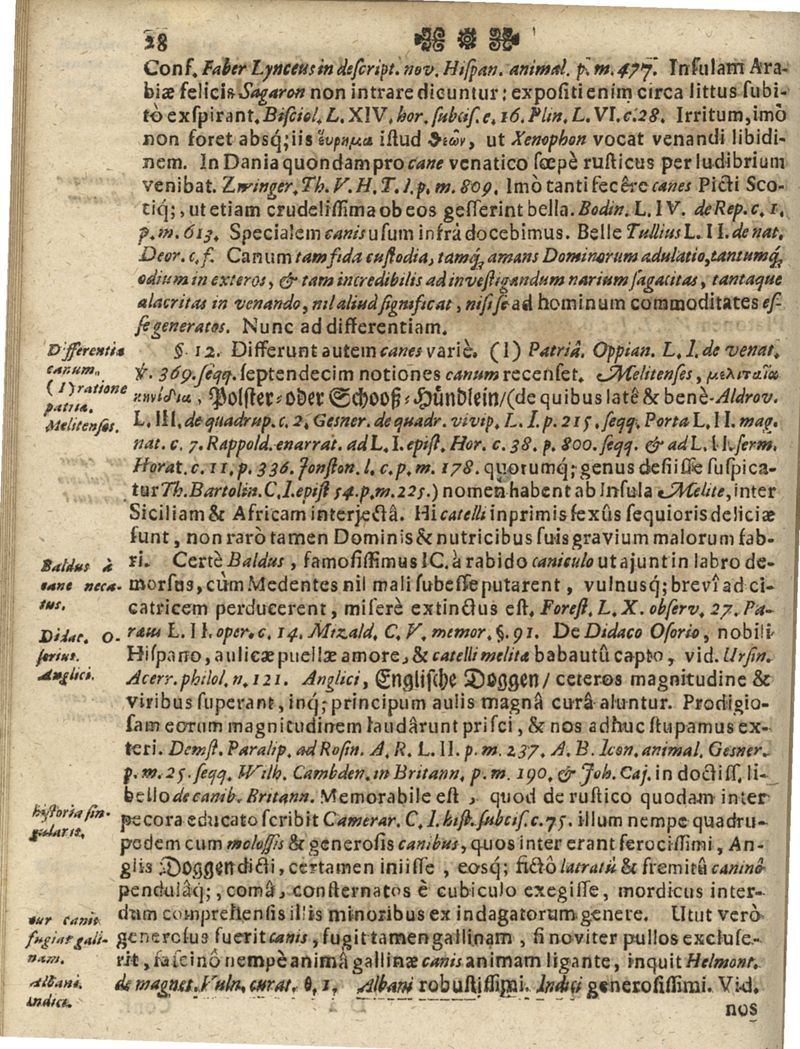 28
Conf. Faber Lynceus in deſcript. nov. Hiſpan. animal. p. m. 477. Inſulam Ara-
biæ felicis Sagaron non intrare dicuntur: expoſiti enim circa littus ſubi-
tò exſpirant. Biſciol. L. XIV. hor. ſubciſ. c. 16. Plin. L. VI. c. 28. Irritum, imò
non foret abſq; iis ἕυρημα iſtud ϑεῶν, ut Xenophon vocat venandi libidi-
nem. In Dania quondam pro cane venatico ſœpè ruſticus per ludibrium
venibat. Zwinger. Th. V. H. T. I. p. m. 809. Imò tanti fecêre canes Picti Sco-
tiq;, ut etiam crudeliſſima ob eos geſſerint bella. Bodin. L. IV. de Rep. c. 1.
p. m. 613. Specialem canis uſum infrà docebimus. Belle Tullius L. II. de nat.
Deor. c. f. Canum tam fida cuſtodia, tamq́; amans Dominorum adulatio, tantumq́;
odium in exteros, & tam incredibilis ad inveſtigandum narium ſagacitas, tantaque
alacritas in venando, nil aliud ſignificat, niſi ſe ad hominum commoditates eſ-
ſe generatos. Nunc ad differentiam.
Differentia
canum.
(1) ratione
patriæ.
Melitenſes.
§. 12. Differunt autem canes variè. (1) Patriâ. Oppian. L. I. de venat.
℣. 369. ſeqq. ſeptendecim notiones canum recenſet. Melitenſes, μελιταῖα
κυνίδια, Polſter- oder Schooß-Hündlein/ (de quibus latê & benè Aldrov.
L. III. de quadrup. c. 2. Geſner. de quadr. vivip. L. I. p. 215. ſeqq. Porta L. II. mag.
nat. c. 7. Rappold. enarrat. ad L. I. epiſt. Hor. c. 38. p. 800. ſeqq. & ad L. II. ſerm.
Horat. c. 11. p. 336. Jonſton. l. c. p. m. 178. quorumq; genus deſiiſſe ſuſpica-
tur Th. Bartolin. C. I. epiſt 54. p. m. 225.) nomen habent ab Inſula Melite, inter
Siciliam & Africam interjectâ. Hi catelli inprimis ſexûs ſequioris deliciæ
ſunt, non rarò tamen Dominis & nutricibus ſuis gravium malorum fab-
Baldus à
cane neca-
tus.
ri. Certè Baldus, famoſiſſimus IC. à rabido caniculo ut ajunt in labro de-
morſus, cùm Medentes nil mali ſubeſſe putarent, vulnusq; brevî ad ci-
catricem perducerent, miſerè extinctus eſt. Foreſt. L. X. obſerv. 27. Pa-
Didac. O-
ſorius.
Anglici.
ræus L. II. oper. c. 14. Mizald. C. V. memor. §. 91. De Didaco Oſorio, nobili
Hiſpano, aulicæ puellæ amore, & catelli melita babautû capto, vid. Urſin.
Acerr. philol. n. 121. Anglici, Engliſche Doggen/ ceteros magnitudine &
viribus ſuperant, inq; principum aulis magnâ curâ aluntur. Prodigio-
ſam eorum magnitudinem laudârunt priſci, & nos adhuc ſtupamus ex-
teri. Demſt. Paralip. ad Roſin. A. R. L. II. p. m. 237. A. B. Icon. animal. Geſner.
p. m. 25. ſeqq. Wilh. Cambden. in Britann. p. m. 190. & Joh. Caj. in doctiſſ. li-
hiſtoria ſin-
gularis.
bello de canib. Britann. Memorabile eſt, quod de ruſtico quodam inter
pecora educato ſcribit Camerar. C. I. hiſt. ſubciſ. c. 75. illum nempe quadru-
pedem cum moloſſis & generoſis canibus, quos inter erant ferociſſimi, An-
glis Doggen dicti, certamen iniiſſe, eosq; fictô latratû & fremitû caninô
pendulâq;, comâ, conſternatos è cubiculo exegiſſe, mordicus inter-
dum comprehenſis illis minoribus ex indagatorum genere. Utut verò
cur canis
fugiat galli-
nam.
generoſus fuerit canis, fugit tamen gallinam, ſi noviter pullos excluſe-
rit, faſcinô nempè animâ gallinæ canis animam ligante, inquit Helmont.
Albani.
Indici.
de magnet. Vuln. curat. θ. 1. Albani robuſtiſſimi. Indici generoſiſſimi. Vid.
nos